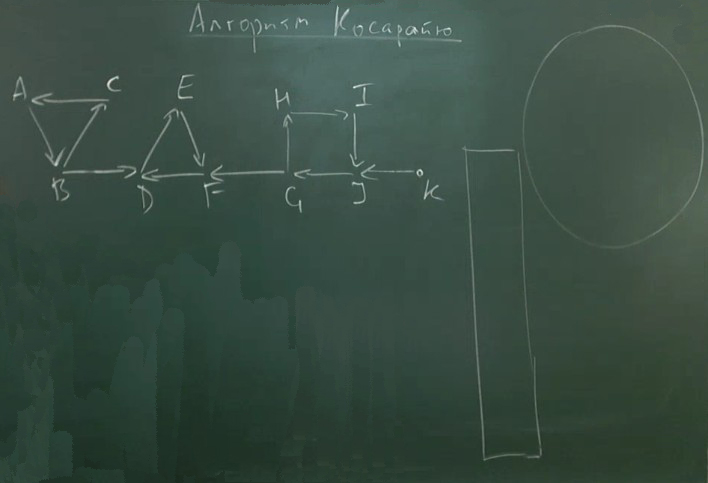 Алгоритм Косарайю
A C E H I
B D F G J K